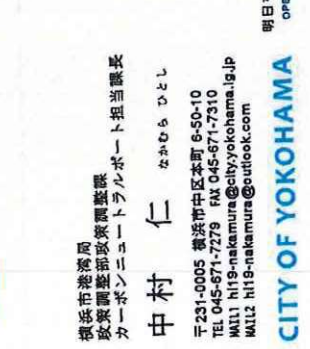 横浜市港湾局
政策調整部政策調整課
カーボンニュートラルポート担当課長
中村 仁 なかむら ひとし
〒231-0005 横浜市中区本町 6-50-10
TEL 045-671-7279 FAX 045-671-7310
MAIL1 hi19-nakamura@city.yokohama.lg.jp
MAIL2 hi19-nakamura@outlook.com
明日
OPE
CITY OF YOKOHAMA